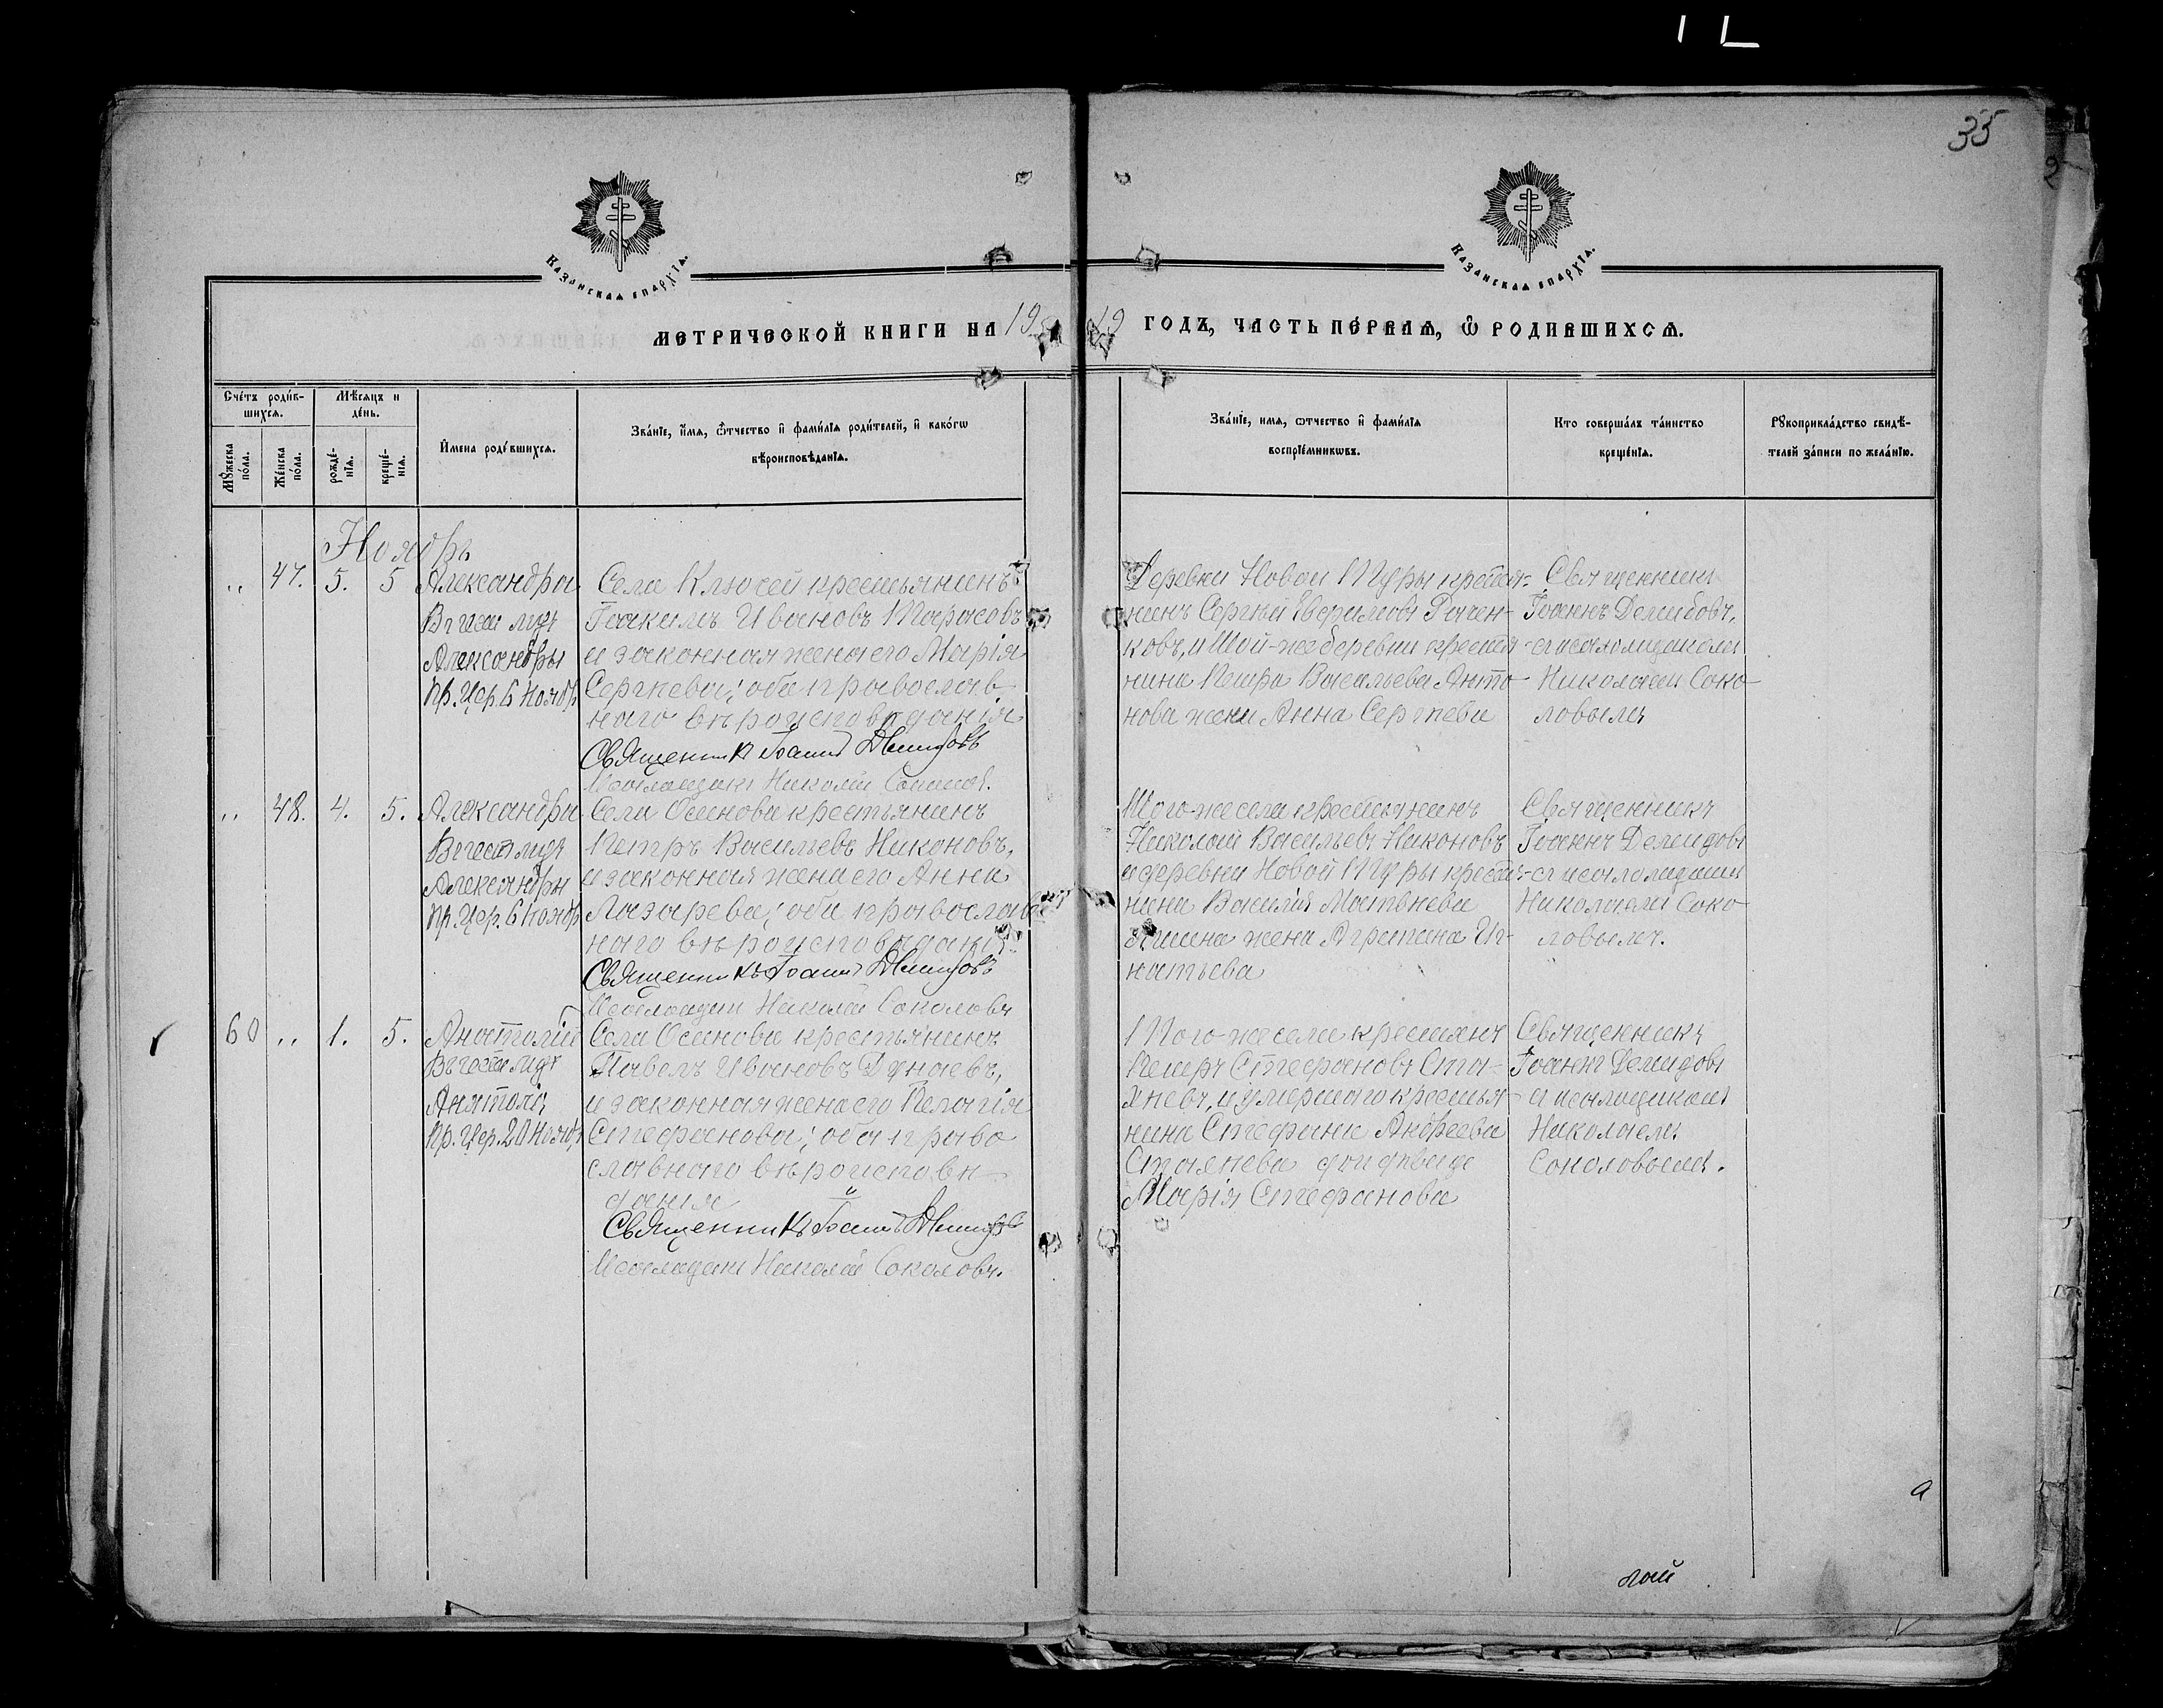 35
Казанская епархїа.
Казанская епархїа.
Метрической книги на 19
19 годъ, часть первая, ѡ родившихся.
Счетъ родив-
шихся.
Мѣсяцъ и
день.
Мужеска
пола.
Женска
пола.
рожде-
нїя.
креще-
нїя.
Имена родившихся.
Званїе, имя, ѿчество и фамилїя родителей, и какогѡ
вѣроисповѣданїя.
Званїе, имя, ѿчество и фамилїя
воспрїемникѡвъ.
Кто совершалъ таинство
крещенїя.
Рукоприкладство свидѣ-
телей записи по желанїю.
Ноябрь
„ 47. 5. 5 Александра
Въ честь муч
Александры
пр. Цер. 6 Ноябр
Села Ключей крестьянинъ
Іоакимъ Ивановъ Тарасовъ
и законная жена его Марія
Сергѣева; оба православ-
наго вѣроисповѣданія
Священникъ Іоаннъ Демидовъ
Псаломщикъ Николай
Деревни Новой Туры крестья-
нинъ Сергѣй
ковъ, и той-же деревни крестья-
нина Петра Васильева Анто-
нова жена Анна Сергѣева
Священникъ
Іоаннъ Демидовъ,
съ псаломщикомъ
Николаемъ Соко-
ловымъ
„ 48. 4. 5. Александра
Въ честь муч
Александры
пр. Цер. 6 Ноябр
Села Осинова крестьянинъ
Петръ Васильевъ Никоновъ,
и законная жена его Анна
Лазарева; оба православ-
наго вѣроисповѣданія
Священникъ Іоаннъ Демидовъ
Псаломщикъ Николай Соколовъ
Того-же села крестьянинъ
Николай Васильевъ Никоновъ
и деревни Новой Туры крестья-
нина Василія Матвѣева
жена Агрипина Иг-
натьева
Священникъ
Іоаннъ Демидовъ
съ псаломщикомъ
Николаемъ Соко-
ловымъ.
60 „ 1. 5. Анатолій
Въ честь муч
Анатолія
пр. Цер. 20 Ноябр
Села Осинова крестьянинъ
Павелъ Ивановъ Дунаевъ,
и законная жена его Пелагія
Стефанова; оба право-
славнаго вѣроисповѣ-
данія
Священникъ Іоаннъ Демидовъ
Псаломщикъ Николай Соколовъ.
Того-же села крестьянинъ
Петръ Стефановъ Ста-
хѣевъ, и умершаго крестья-
нина Стефана Андреева
Стахѣева дочь дѣвица
Марія Стефанова
Священникъ
Іоаннъ Демидовъ
съ псаломщикомъ
Николаемъ
Соколовымъ.